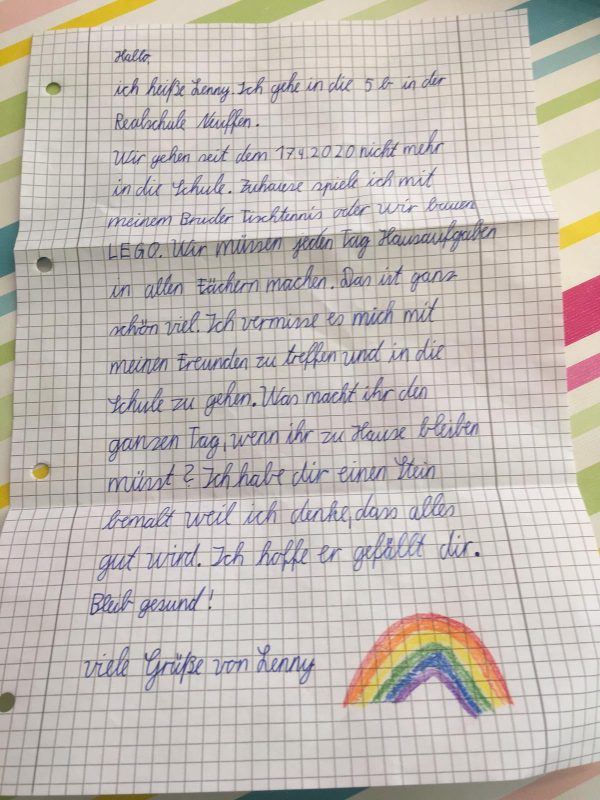 Hallo,
ich heiße Lenny. Ich gehe in die 5 b in der
Realschule Neuffen.
Wir gehen seit dem 17.4.2020 nicht mehr
in die Schule. Zuhause spiele ich mit
meinem Bruder Tischtennis oder wir bauen
LEGO. Wir müssen jeden Tag Hausaufgaben
in allen Fächern machen. Das ist ganz
schön viel. Ich vermisse es mich mit
meinen Freunden zu treffen und in die
Schule zu gehen. Was macht ihr den
ganzen Tag, wenn ihr zu Hause bleiben
müsst? Ich habe dir einen Stein
bemalt weil ich denke, dass alles
gut wird. Ich hoffe er gefällt dir.
Bleib gesund!
viele Grüße von Lenny